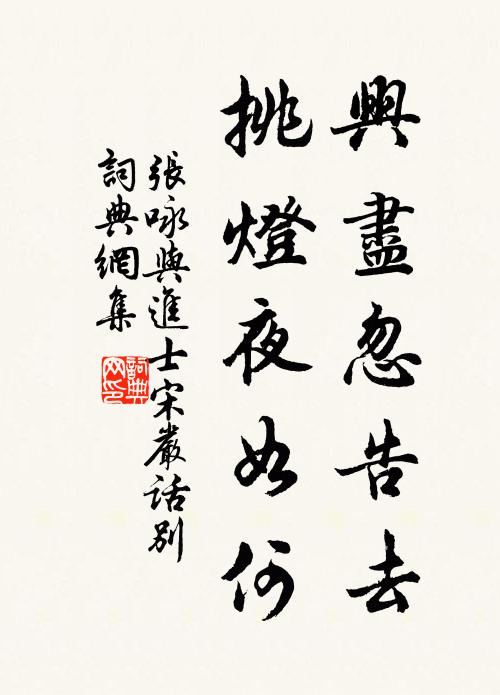 興盡忽告去
挑燈夜如何
張咏與進士宋嚴話別
詞典網集
詞典
网印